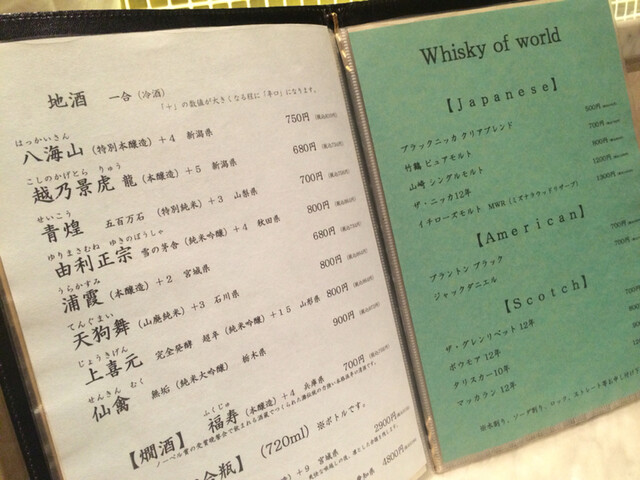 地酒 一合(冷酒)
「+」の数値が大きくなる程に「辛口」になります。
はっかいさん
八海山(特別本醸造)+4 新潟県 750円
こしのかげとら りゅう
越乃景虎 龍(本醸造)+5 新潟県 680円
せいこう
青煌 五百万石(特別純米)+3 山梨県 700円
ゆりまさむね ゆきのぼうしゃ
由利正宗 雪の茅舎(純米吟醸)+4 秋田県 800円
うらかすみ
浦霞(本醸造)+2 宮城県 680円
てんぐまい
天狗舞(山廃純米)+3 石川県 800円
じょうきげん
上喜元 完全発酵 超辛(純米吟醸)+15 山形県 800円
せんきん むく
仙禽 無垢(純米大吟醸) 栃木県 900円
【燗酒】
ふくじゅ
福寿(本醸造)+4 兵庫県 700円
(720ml) ※ボトルです。
+9 宮城県 2900円
4800円
Whisky of world
【Japanese】
ブラックニッカ クリアブレンド 500円
竹鶴 ピュアモルト 700円
山崎 シングルモルト 800円
ザ・ニッカ12年 1200円
イチローズモルト MWR(ミズナラウッドリザーブ) 1300円
【American】
ブラントン ブラック 700円
ジャックダニエル 700円
【Scotch】
ザ・グレンリベット 12年
ボウモア 12年
タリスカー10年
マッカラン 12年